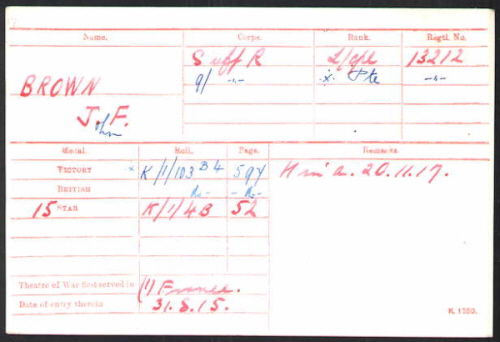 Name. Corps. Rank. Regtl. No.
Suff R L/cpl 13212
BROWN 9/ -"- x Pte -"-
J. F.
John
Medal. Roll. Page. Remarks.
VICTORY x K/1/103 B4 597 K in a. 20.11.17.
BRITISH -do- -do-
15 STAR K/1/4B 52
Theatre of War first served in (1) France.
Date of entry therein 31.8.15.
K. 1380.